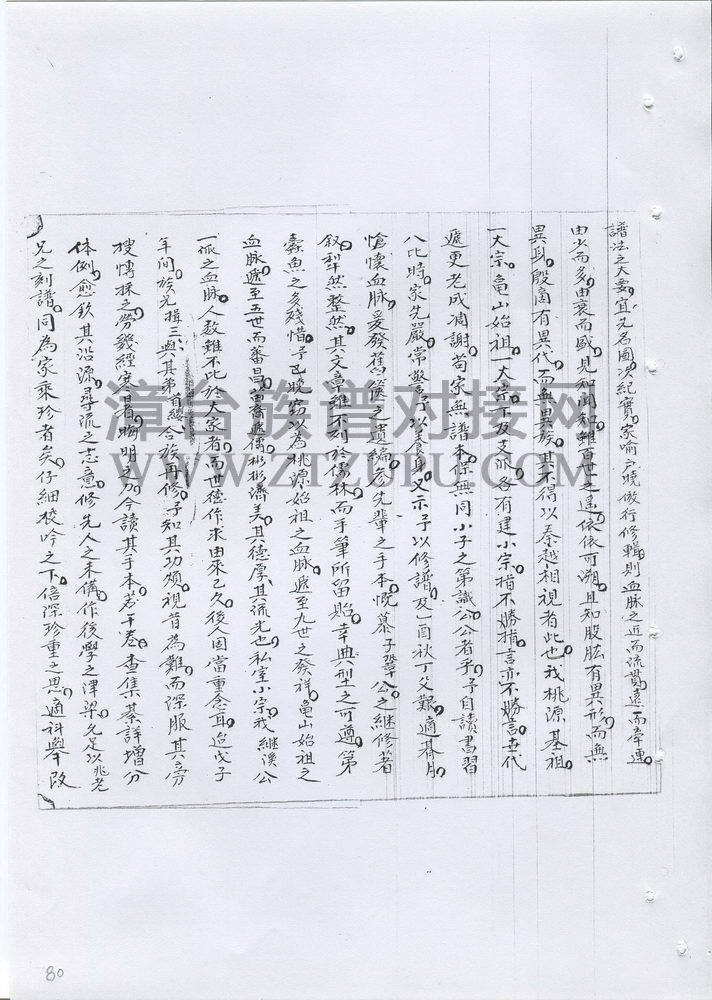 譜法之大要。宜先名圖。次紀實。家喻戶曉。倣行修輯。則血脉之近而流貫。遠而牽連。
由少而多。由衰而盛。見知聞知。雖百世之遙。依依可溯。且知股肱有異形。而無
異身。殷商有異代。而無異族。其不得以秦越相視者此也。我桃源基祖。
一大宗。龜山始祖一大宗。下及支派。各有建小宗。指不勝指。言亦不勝言。世代
遞更。老成凋謝。苟家無譜本。保無同小子之第識公公者乎。予自讀書習
八比時。家先嚴常警予以養身。又示予以修譜。及乙酉秋丁父艱。適朞月。
愴懷血脉。爰發舊篋之遺編。參先輩之手本。慨慕子鞏公之継修著
叙。犁然整然。其文章雖不列於儒林。而手筆所留貽。幸典型之可遵。第
蠹魚之多殘惜。予已晚。窃以為桃源始祖之血脉。遞至九世之發祥。龜山始祖之
血脉。遞至五世而蕃昌。苗裔迭傳。彬彬濟美。其德厚。其流光也。私室小宗。我継溪公
一派之血脉。人数雖不比於大家者。而世德作求。由來已久。後人固當重念耳。迨戊子
年間。族兄揖三。與其弟首總。合族再修。予知其功頗視昔為難。而深服其旁
搜博採之勞。幾經寒暑晦明。刻今讀其手本。若干卷。查集綦詳。增分
体例。愈欽其沿源尋流之志意。修先人之未備。作後學之津梁。允足以兆老
兄之刻譜。同為家乘珍者矣。仔細校吟之下。倍深珍重之思。適科舉改
漳台族普对接网
WWW.ZTZUPU.COM
80